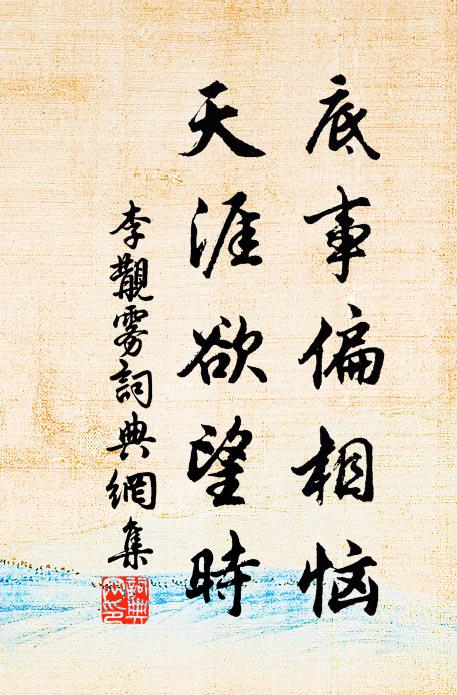 底事偏相恼
天涯欲望時
李觀雾詞典網集